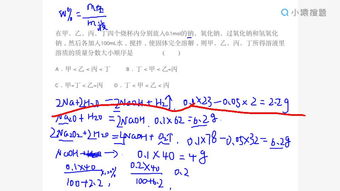 w% = m质/m液
小猿搜题
在甲、乙、丙、丁四个烧杯内分别放入0.1mol的钠、氧化钠、过氧化钠和氢氧化
钠，然后各加入100mL水，搅拌，使固体完全溶解，则甲、乙、丙、丁所得溶液里
溶质的质量分数大小顺序是（　　）
A．甲＜乙＜丙＜丁　B．丁＜甲＜乙=丙
C．甲=丁＜乙=丙　D．丁＜甲＜乙＜丙
2Na+2H2O → 2NaOH + H2↑ 0.1×23-0.05×2=2.2g
Na2O + H2O = 2NaOH. 0.1×62=6.2g
2Na2O2+2H2O = 4NaOH + O2↑. 0.1×78-0.05×32=6.2g
NaOH → 0.1×40=4g
0.1×40/100+2.2 0.2×40/100+6.2 0.2